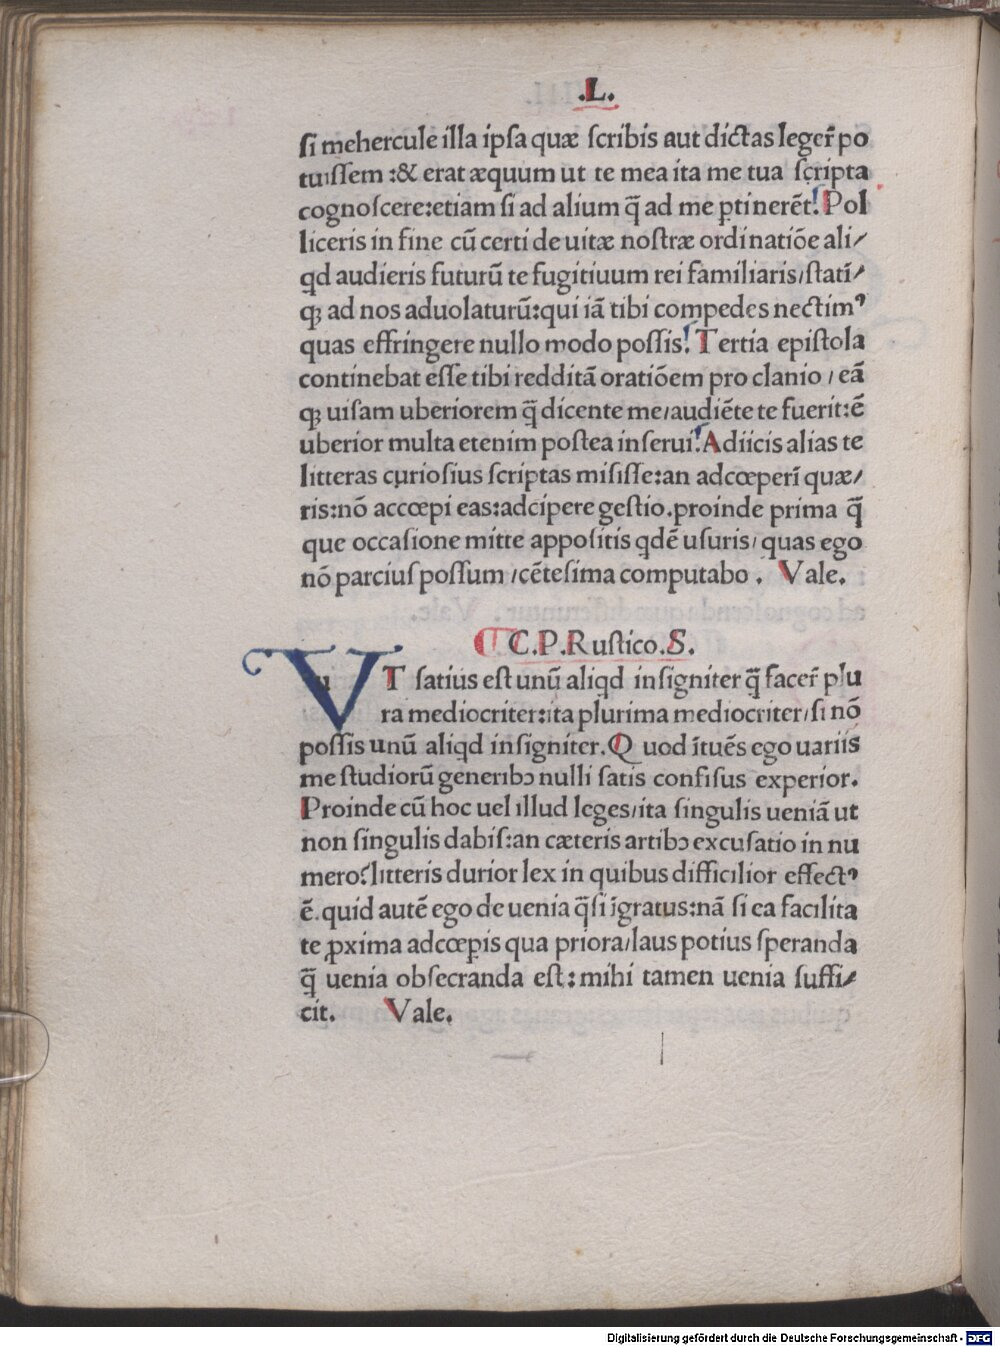 .L.
si mehercule illa ipsa quæ scribis aut dictas leger̃ po
tuissem :& erat æquum ut te mea ita me tua scripta
cognoscere:etiam si ad alium q̃ ad me ꝑtinerẽt. Pol
liceris in fine cũ certi de uitæ nostræ ordinatiõe ali/
qd audieris futurũ te fugitiuum rei familiaris/statĩ/
qꝫ ad nos aduolaturũ:qui iã tibi compedes nectimꝰ
quas effringere nullo modo possis. Tertia epistola
continebat esse tibi redditã oratiõem pro clanio / eã
qꝫ uisam uberiorem q̃ dicente me/audiẽte te fuerit:ẽ
uberior multa etenim postea inserui. Adiicis alias te
litteras curiosius scriptas misisse:an adcœperĩ quæ/
ris:nõ accœpi eas:adcipere gestio.proinde prima q̃
que occasione mitte appositis qdẽ usuris/ quas ego
nõ parcius possum /cẽtesima computabo . Vale.
C.P.Rustico.S.
VT satius est unũ aliqd insigniter q̃ facer̃ plu
ra mediocriter:ita plurima mediocriter/si nõ
possis unũ aliqd insigniter.Quod ĩtuẽs ego uariis
me studiorũ generibꝫ nulli satis confisus experior.
Proinde cũ hoc uel illud leges/ita singulis ueniã ut
non singulis dabis:an cæteris artibꝫ excusatio in nu
mero?litteris durior lex in quibus difficilior effectꝰ
ẽ.quid autẽ ego de uenia q̃si ĩgratus:nã si ea facilita
te ꝓxima adcœpis qua priora/laus potius speranda
q̃ uenia obsecranda est:mihi tamen uenia suffi/
cit. Vale.
Digitalisierung gefördert durch die Deutsche Forschungsgemeinschaft - DFG